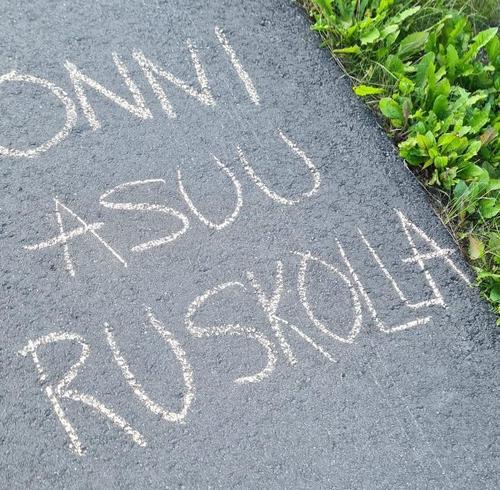 ONNI
ASUU
RUSKOLLA